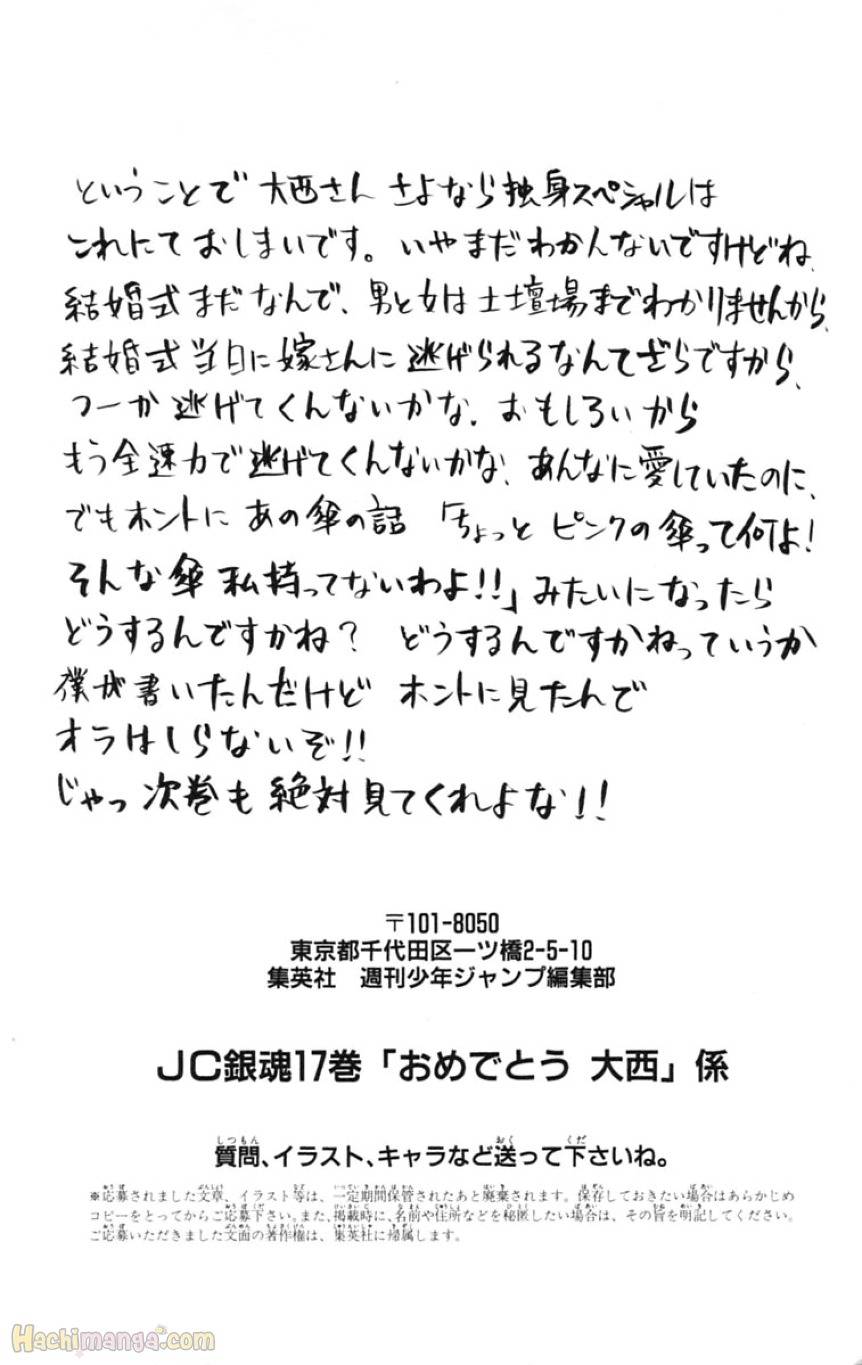 ということで 大西さん さよなら独身スペシャルは
これにておしまいです。いやまだわかんないですけどね、
結婚式まだなんで、男と女は土壇場までわかりませんから、
結婚式当日に嫁さんに逃げられるなんてざらですから、
つーか逃げてくんないかな、おもしろいから
もう全速力で逃げてくんないかな、あんなに愛していたのに、
でもホントにあの傘の話「ちょっとピンクの傘って何よ!
そんな傘私持ってないわよ!!」みたいになったら
どうするんですかね? どうするんですかねっていうか
僕が書いたんだけど ホントに見たんで
オラはしらないぞ!!
じゃっ次巻も絶対見てくれよな!!
〒101-8050
東京都千代田区一ツ橋2-5-10
集英社 週刊少年ジャンプ編集部
JC銀魂17巻「おめでとう 大西」係
質問、イラスト、キャラなど送って下さいね。
※応募されました文章、イラスト等は、一定期間保管されたあと廃棄されます。保存しておきたい場合はあらかじめ
コピーをとってからご応募下さい。また、掲載時に、名前や住所などを秘匿したい場合は、その旨を明記してください。
ご応募いただきました文面の著作権は、集英社に帰属します。
Hachimanga.com